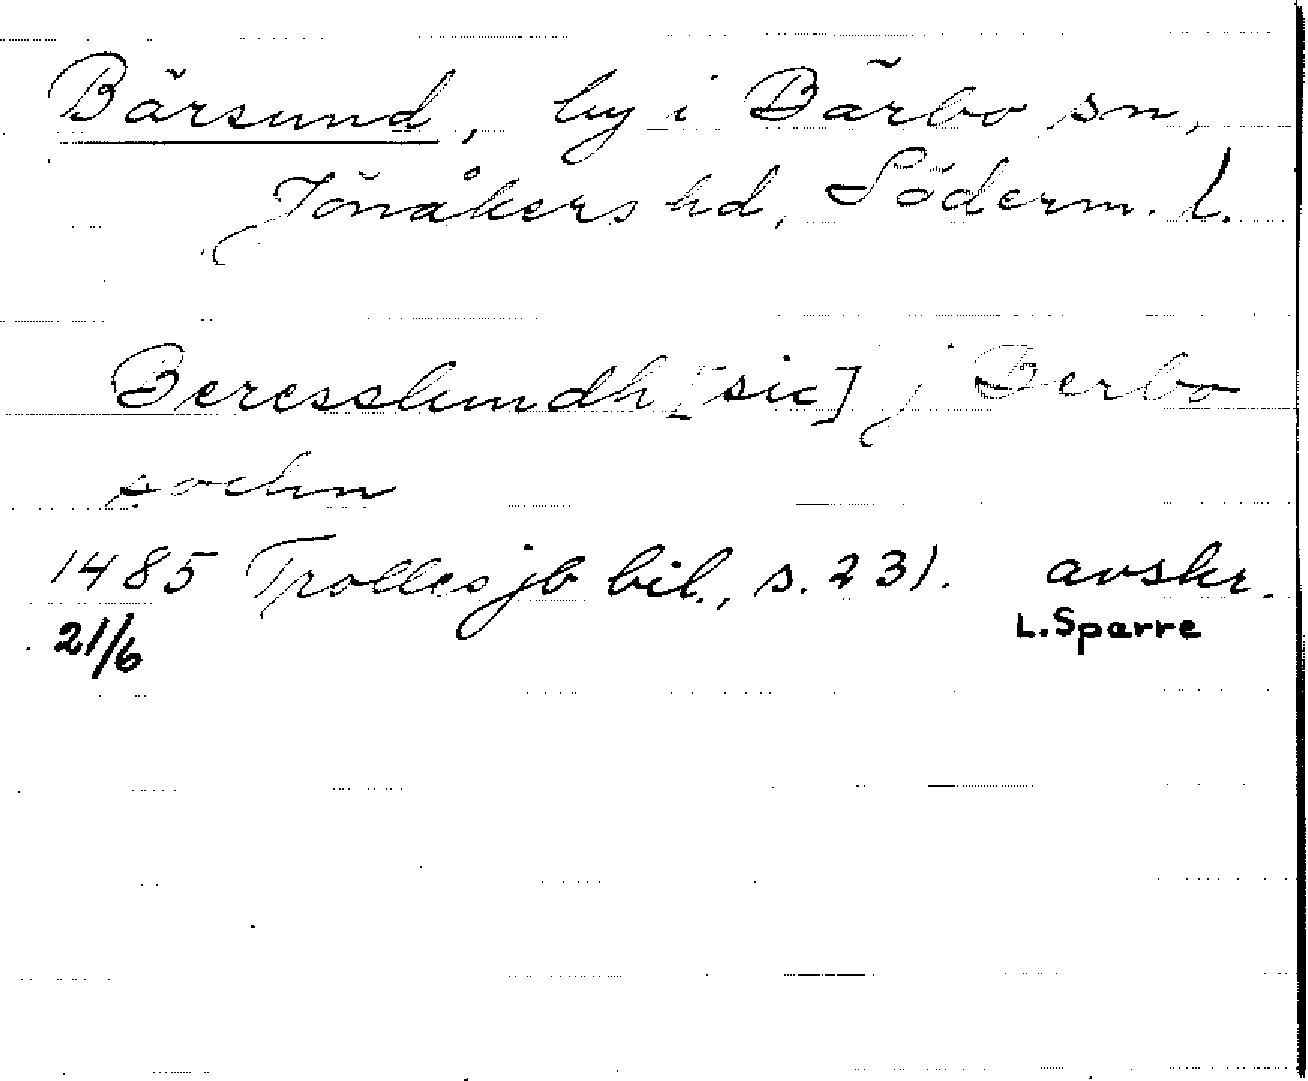 Bärsund, by i Bärbo sn,
Jönåkers hd, Söderm. l.
Beresslundh [sic] j Berbo
sochn
1485 Trolles jb bil., s. 231. avskr.
21/6 L. Sparre